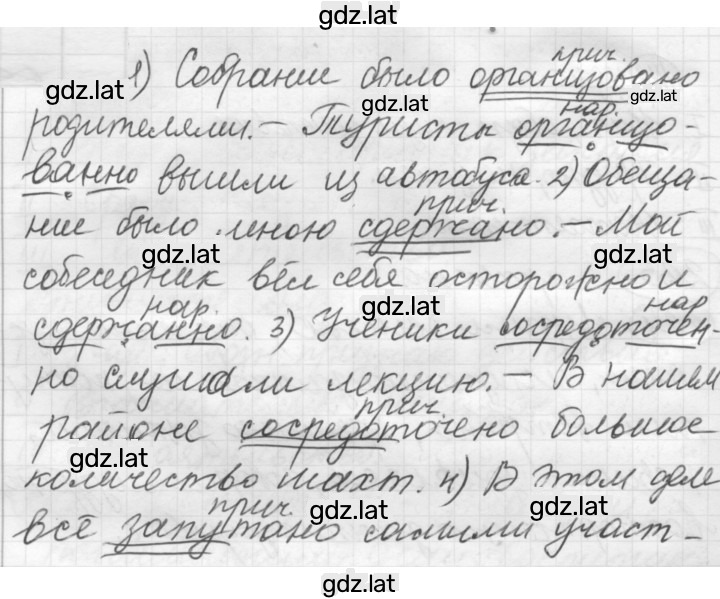 gdz.lat
прич.
1) Собрание было организовано
gdz.lat
gdz.lat
gdz.lat
нар.
родителями. – Туристы организо-
ванно вышли из автобуса. 2) Обеща-
прич.
ние было мною сдержано. – Мой
gdz.lat
gdz.lat
собеседник вёл себя осторожно и
нар.
gdz.lat
нар
сдержанно. 3) Ученики сосредоточен-
но слушали лекцию. – В нашем
прич.
районе сосредоточено большое
gdz.lat
количество шахт. 4) В этом деле
прич.
gdz.lat
gdz.lat
всё запутано самими участ-
gdz.lat